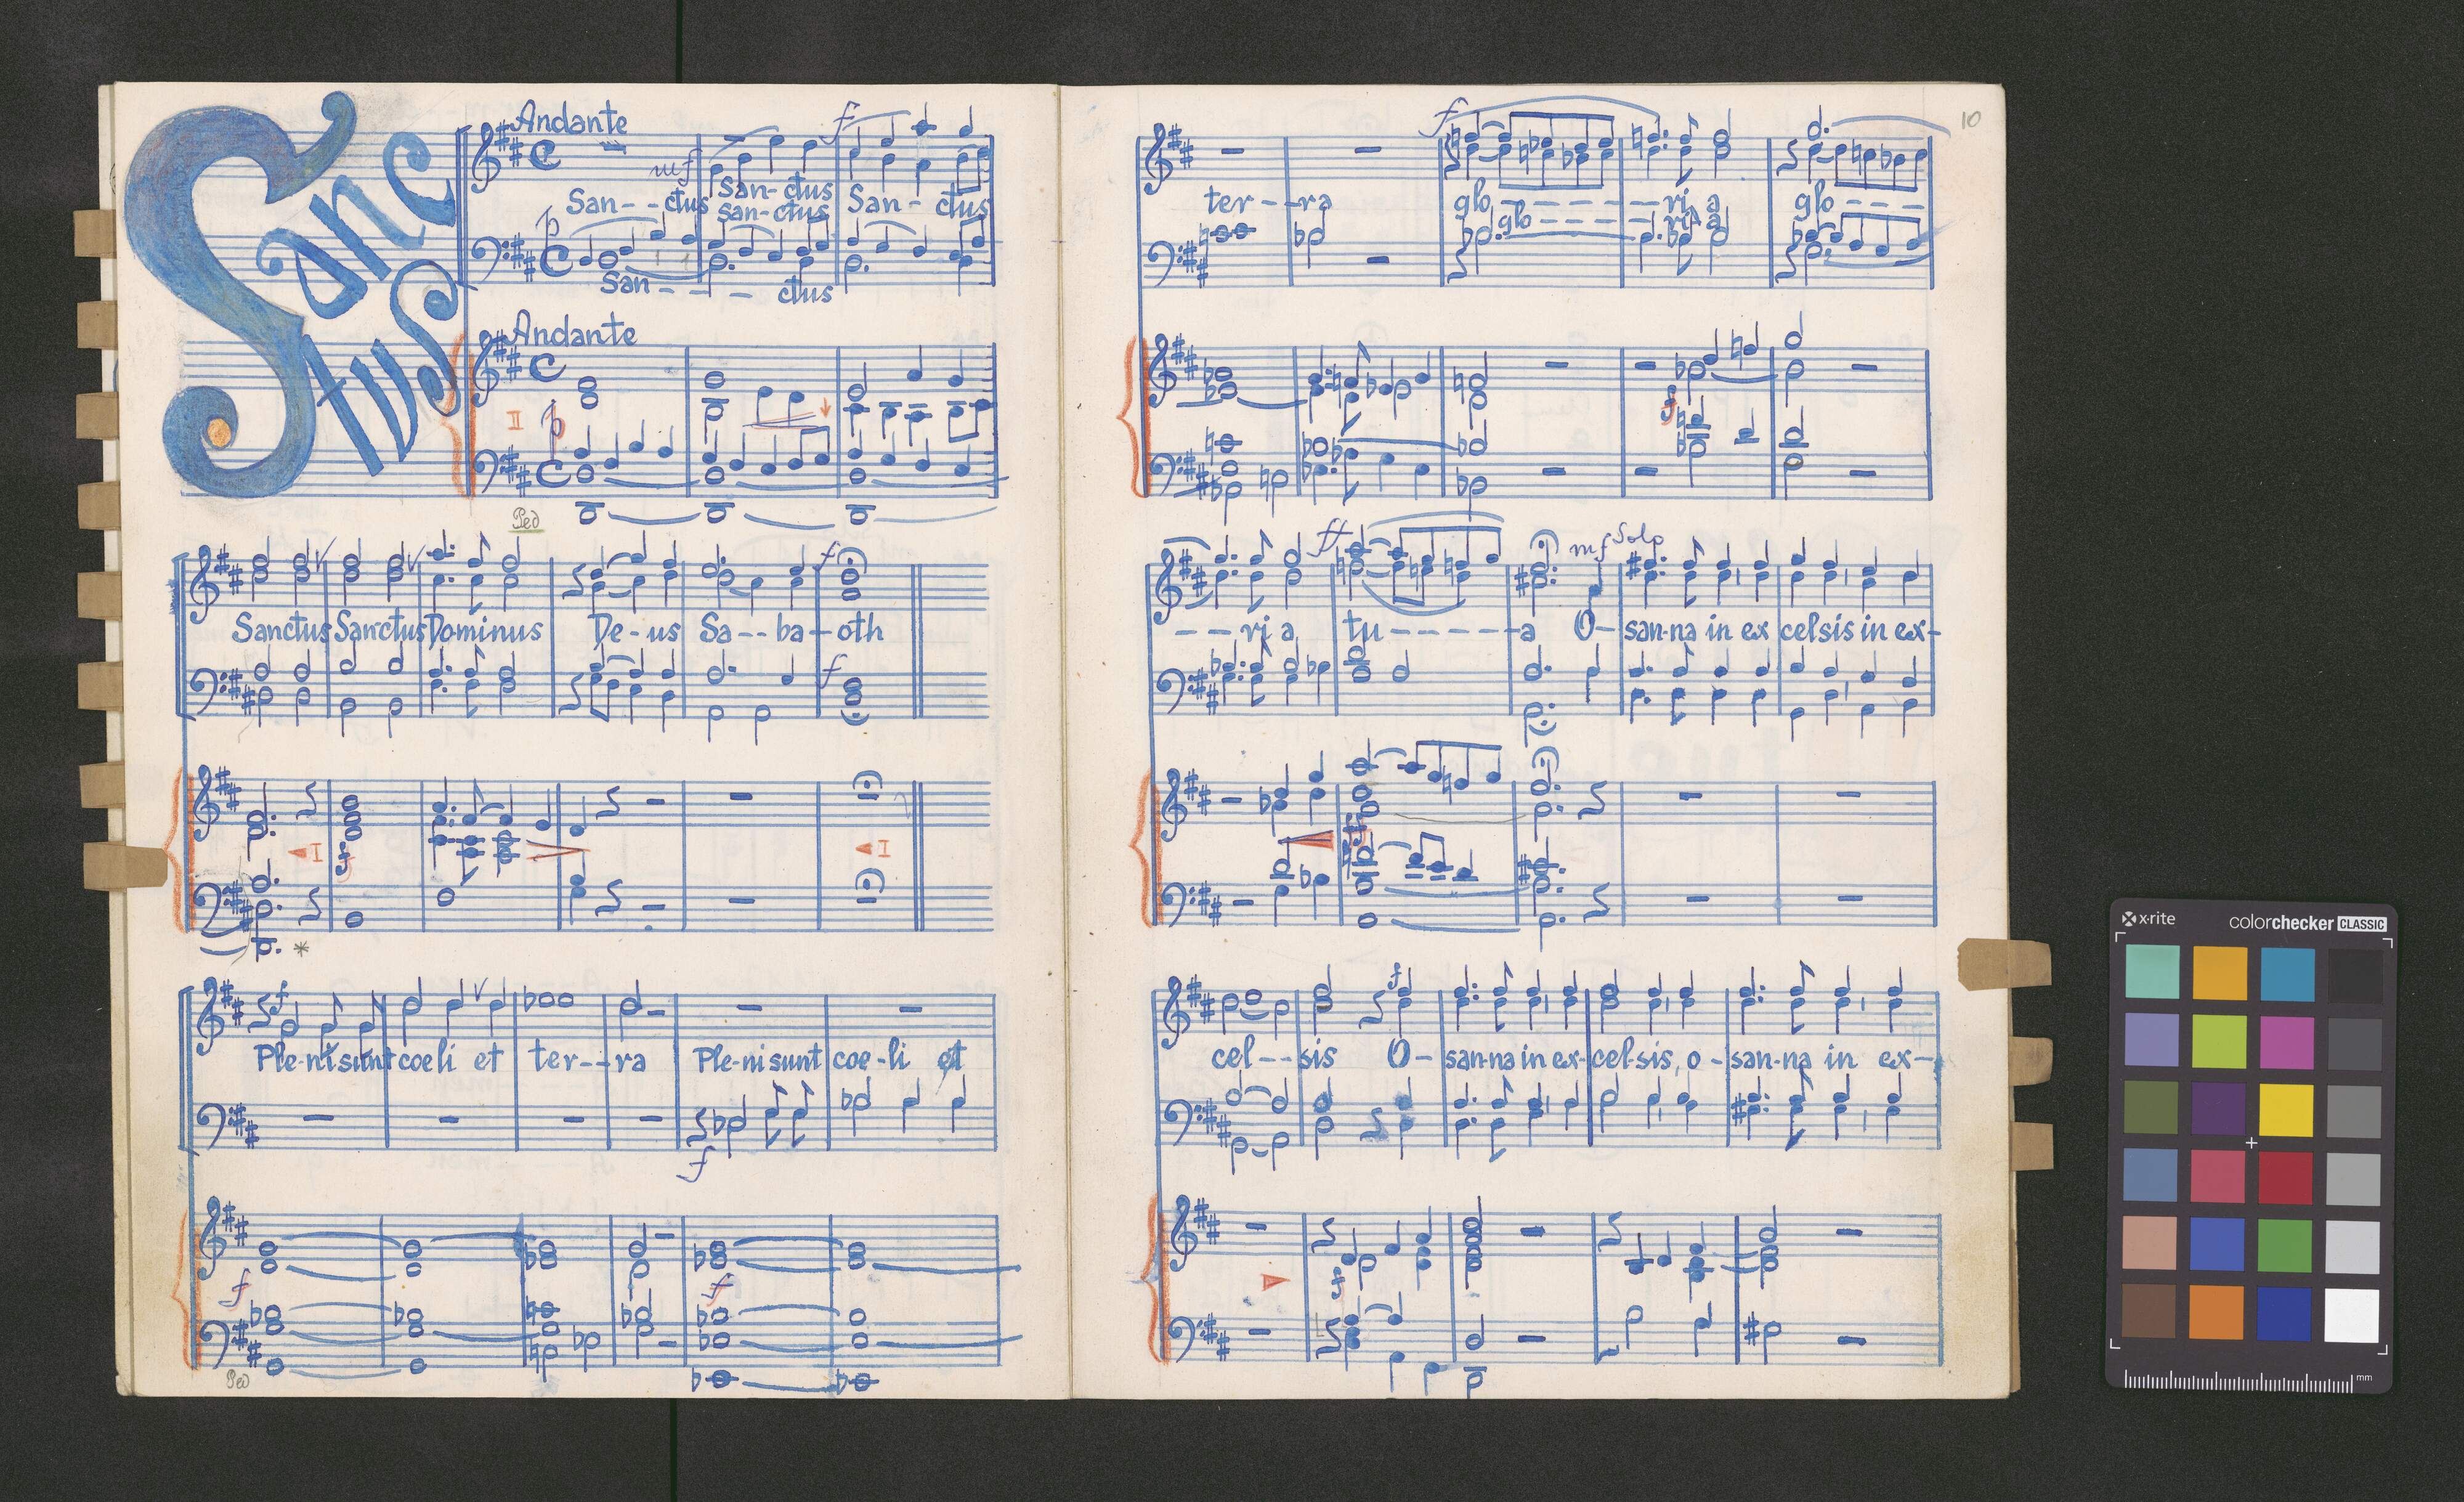 Sanctus
Andante
mf
f
San-ctus
San--ctus san-ctus San-ctus
p
San--- ctus
Andante
II p
Ped
f
Sanctus Sanctus Dominus De-us Sa--ba-oth
f
I f I
*
f
Ple-ni sunt coeli et ter--ra Ple-ni sunt coe-li et
f
f f
Ped
10
f
ter--ra glo------ri a glo---
glo-----ri a
f
ff mf Solo
---ri a tu-----a O-san-na in ex celsis in ex-
f
cel--sis O-san-na in ex-cel-sis, o-san-na in ex-
f
x-rite colorchecker CLASSIC
mm